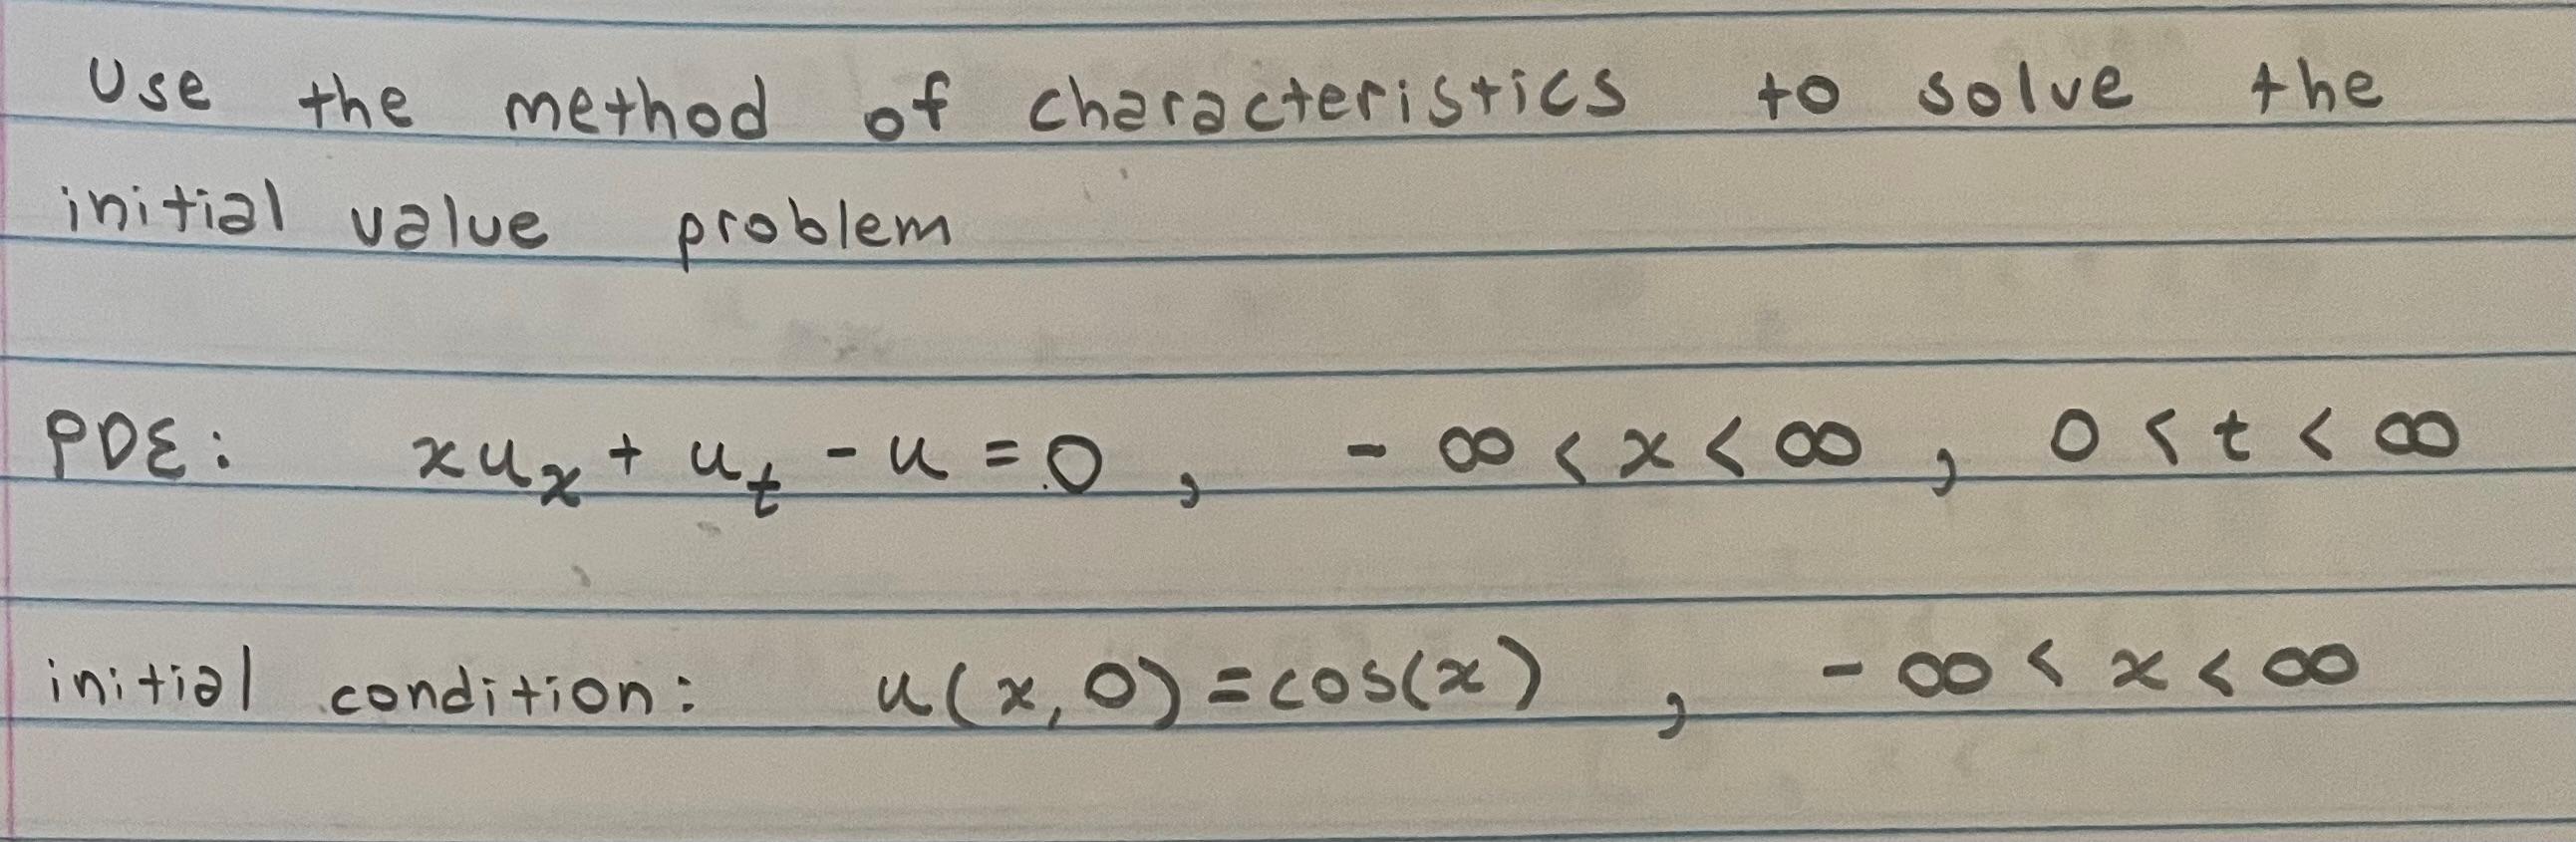 Use the method of characteristics to solve the
initial value problem
PDE: xuₓ + uₜ - u = 0, - ∞ < x < ∞, 0 < t < ∞
initial condition: u(x,0) = cos(x), - ∞ < x < ∞